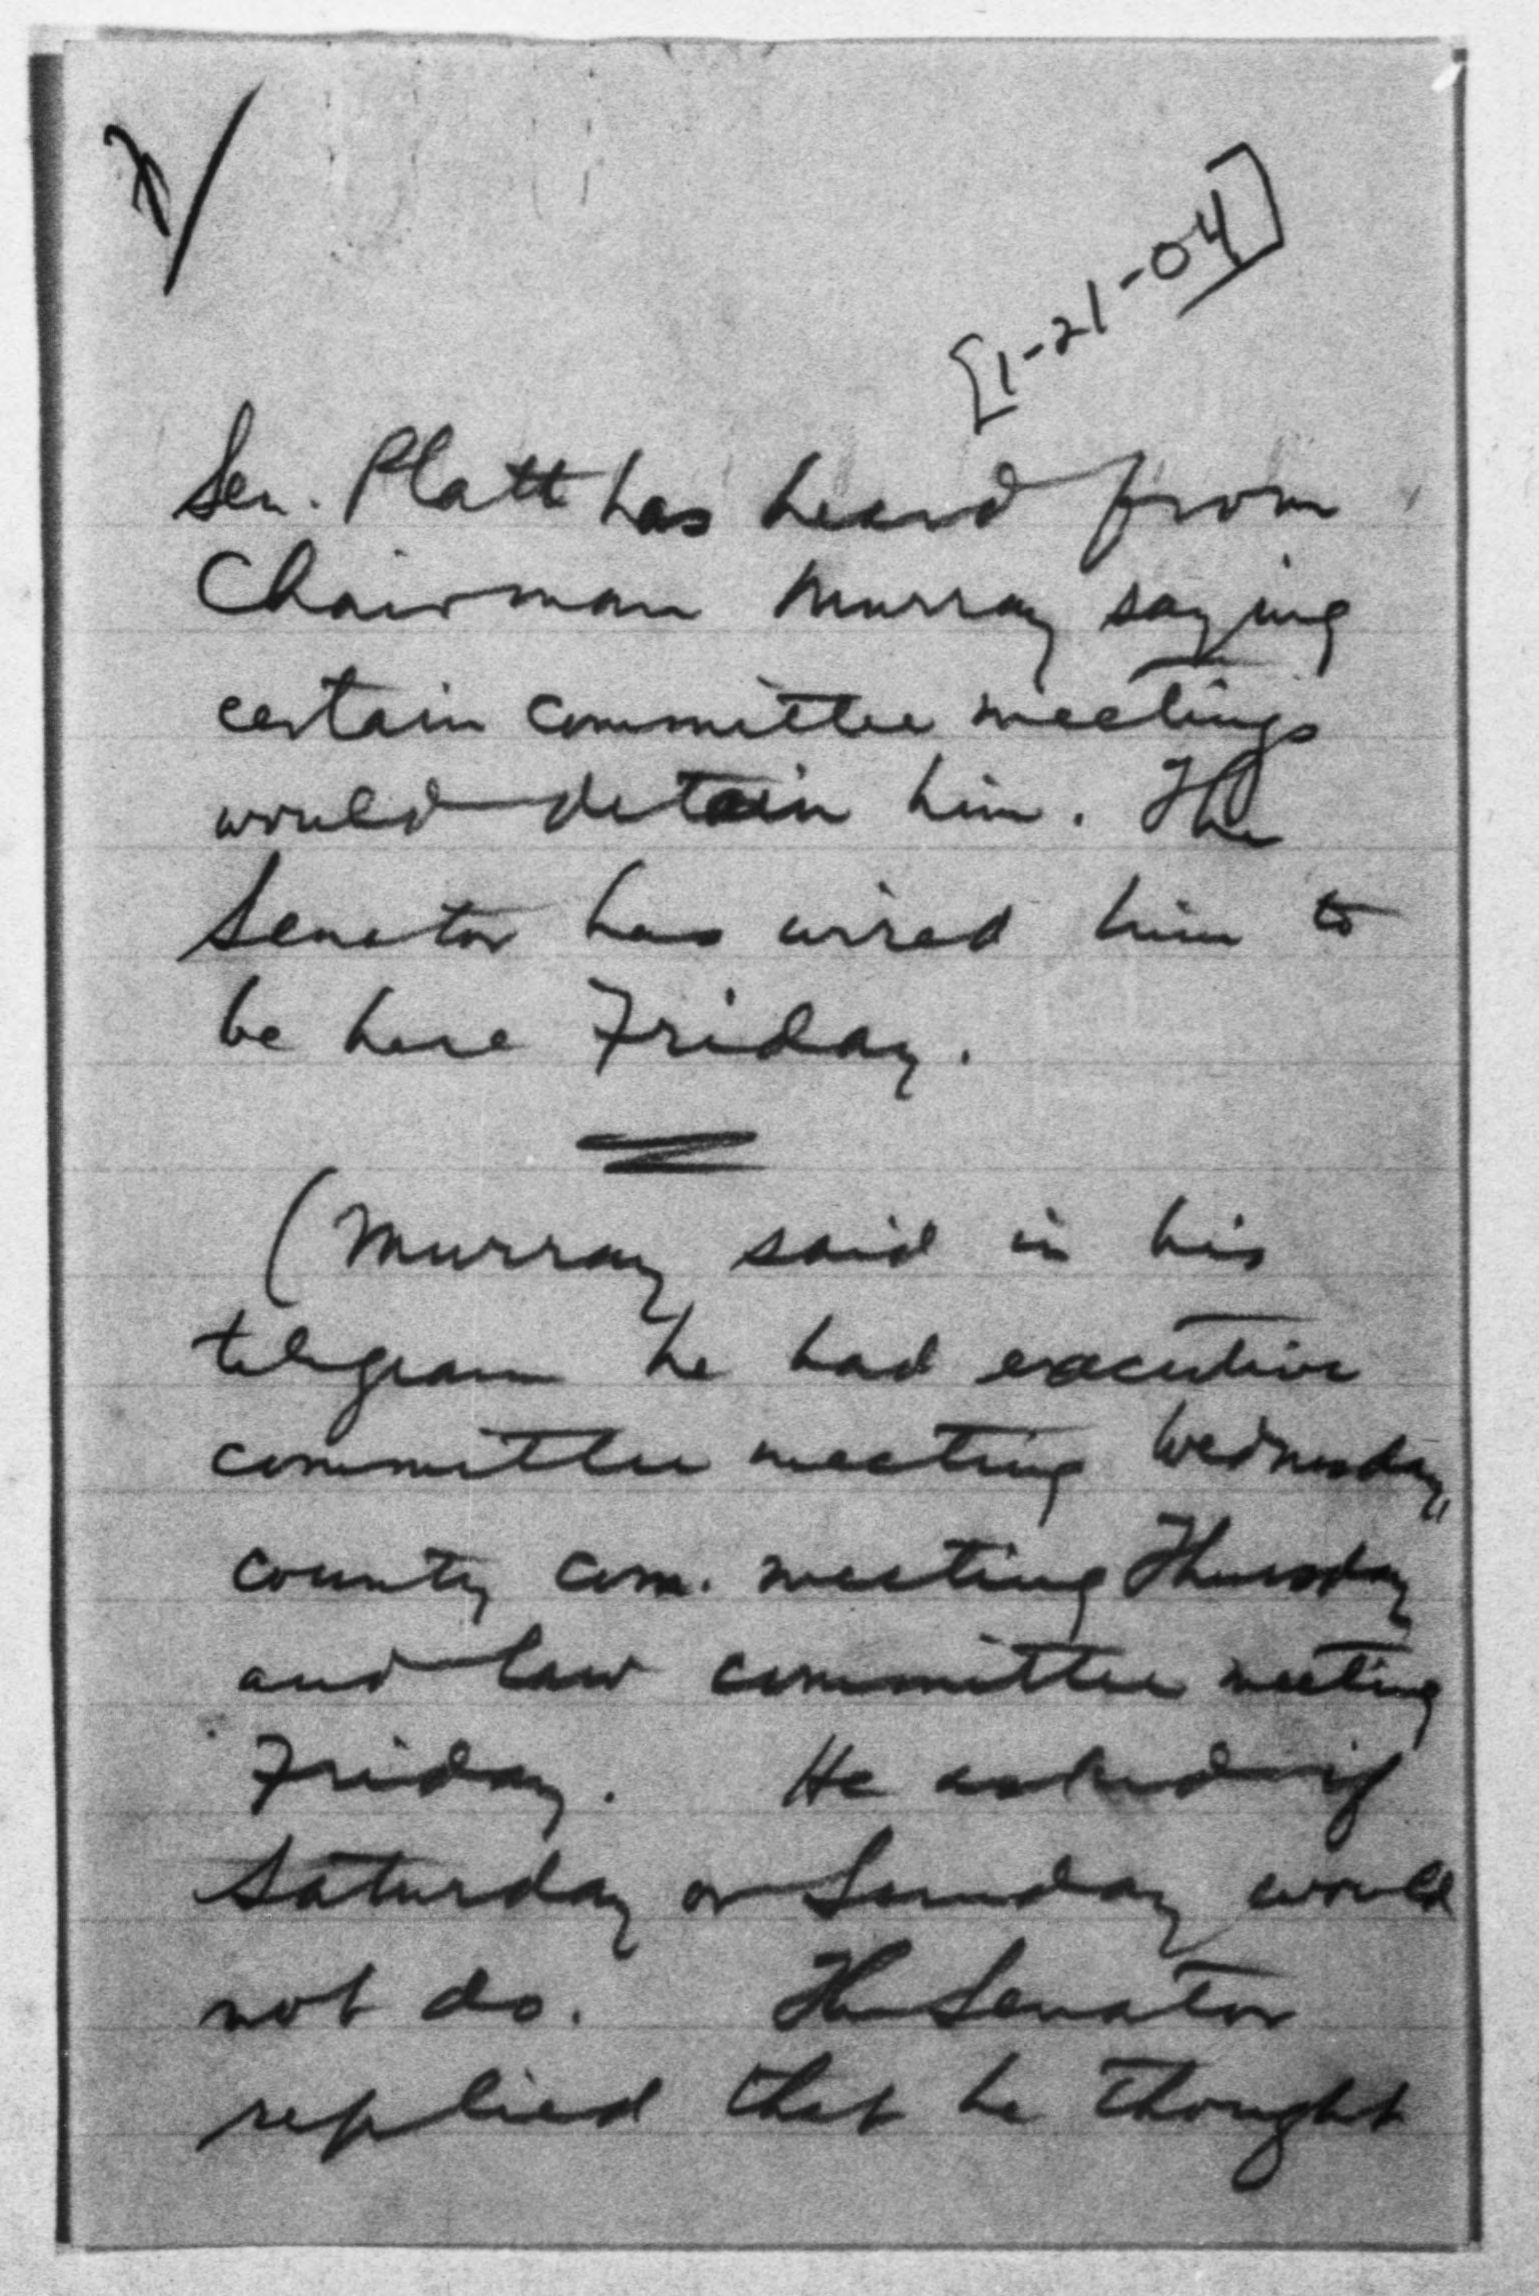 [1-21-04]
Sen. Platt has heard from
Chairman Murray saying
certain committee meetings
would detain him. The
Senator has wired him to
be here Friday.
(Murray said in his
telegram he had executive
committee meeting Wednesday,
county com. meeting Thursday
and law committee meeting
Friday. He asked if
Saturday or Sunday would
not do. The Senator
replied that he thought